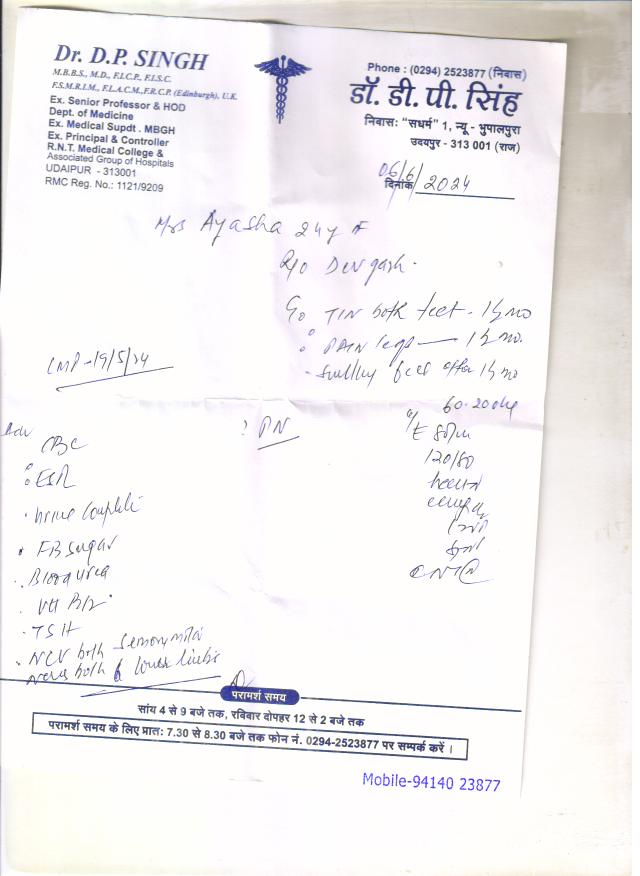 Dr. D.P. SINGH
M.B.B.S., M.D., F.I.C.P., F.I.S.C.
F.S.M.R.I.M., F.I.A.C.M., F.R.C.P. (Edinburgh), U.K.
Ex. Senior Professor & HOD
Dept. of Medicine
Ex. Medical Supdt. MBGH
Ex. Principal & Controller
R.N.T. Medical College &
Associated Group of Hospitals
UDAIPUR - 313001
RMC Reg. No.: 1121/9209
Phone : (0294) 2523877 (निवास)
डॉ. डी. पी. सिंह
निवासः "सधर्म" 1, न्यू - भुपालपुरा
उदयपुर - 313 001 (राज)
दिनांक 06/6/2024
Mrs Ayasha 24y F
R/o Devgarh
C/o TIN both feet - 1½ mo
PAIN legs — 1½ mo.
- Swelling feet off 1½ mo
LMP - 19/5/24
60.20 kg
O/E 80/m
120/80
? PN
Adv
CBC
ESR
Urine Complete
FB Sugar
Blood Urea
Vit B12
TSH
NCV both Sensory motor
Nerves both lower limbs
परामर्श समय
सांय 4 से 9 बजे तक, रविवार दोपहर 12 से 2 बजे तक
परामर्श समय के लिए प्रातः 7.30 से 8.30 बजे तक फोन नं. 0294-2523877 पर सम्पर्क करें ।
Mobile-94140 23877